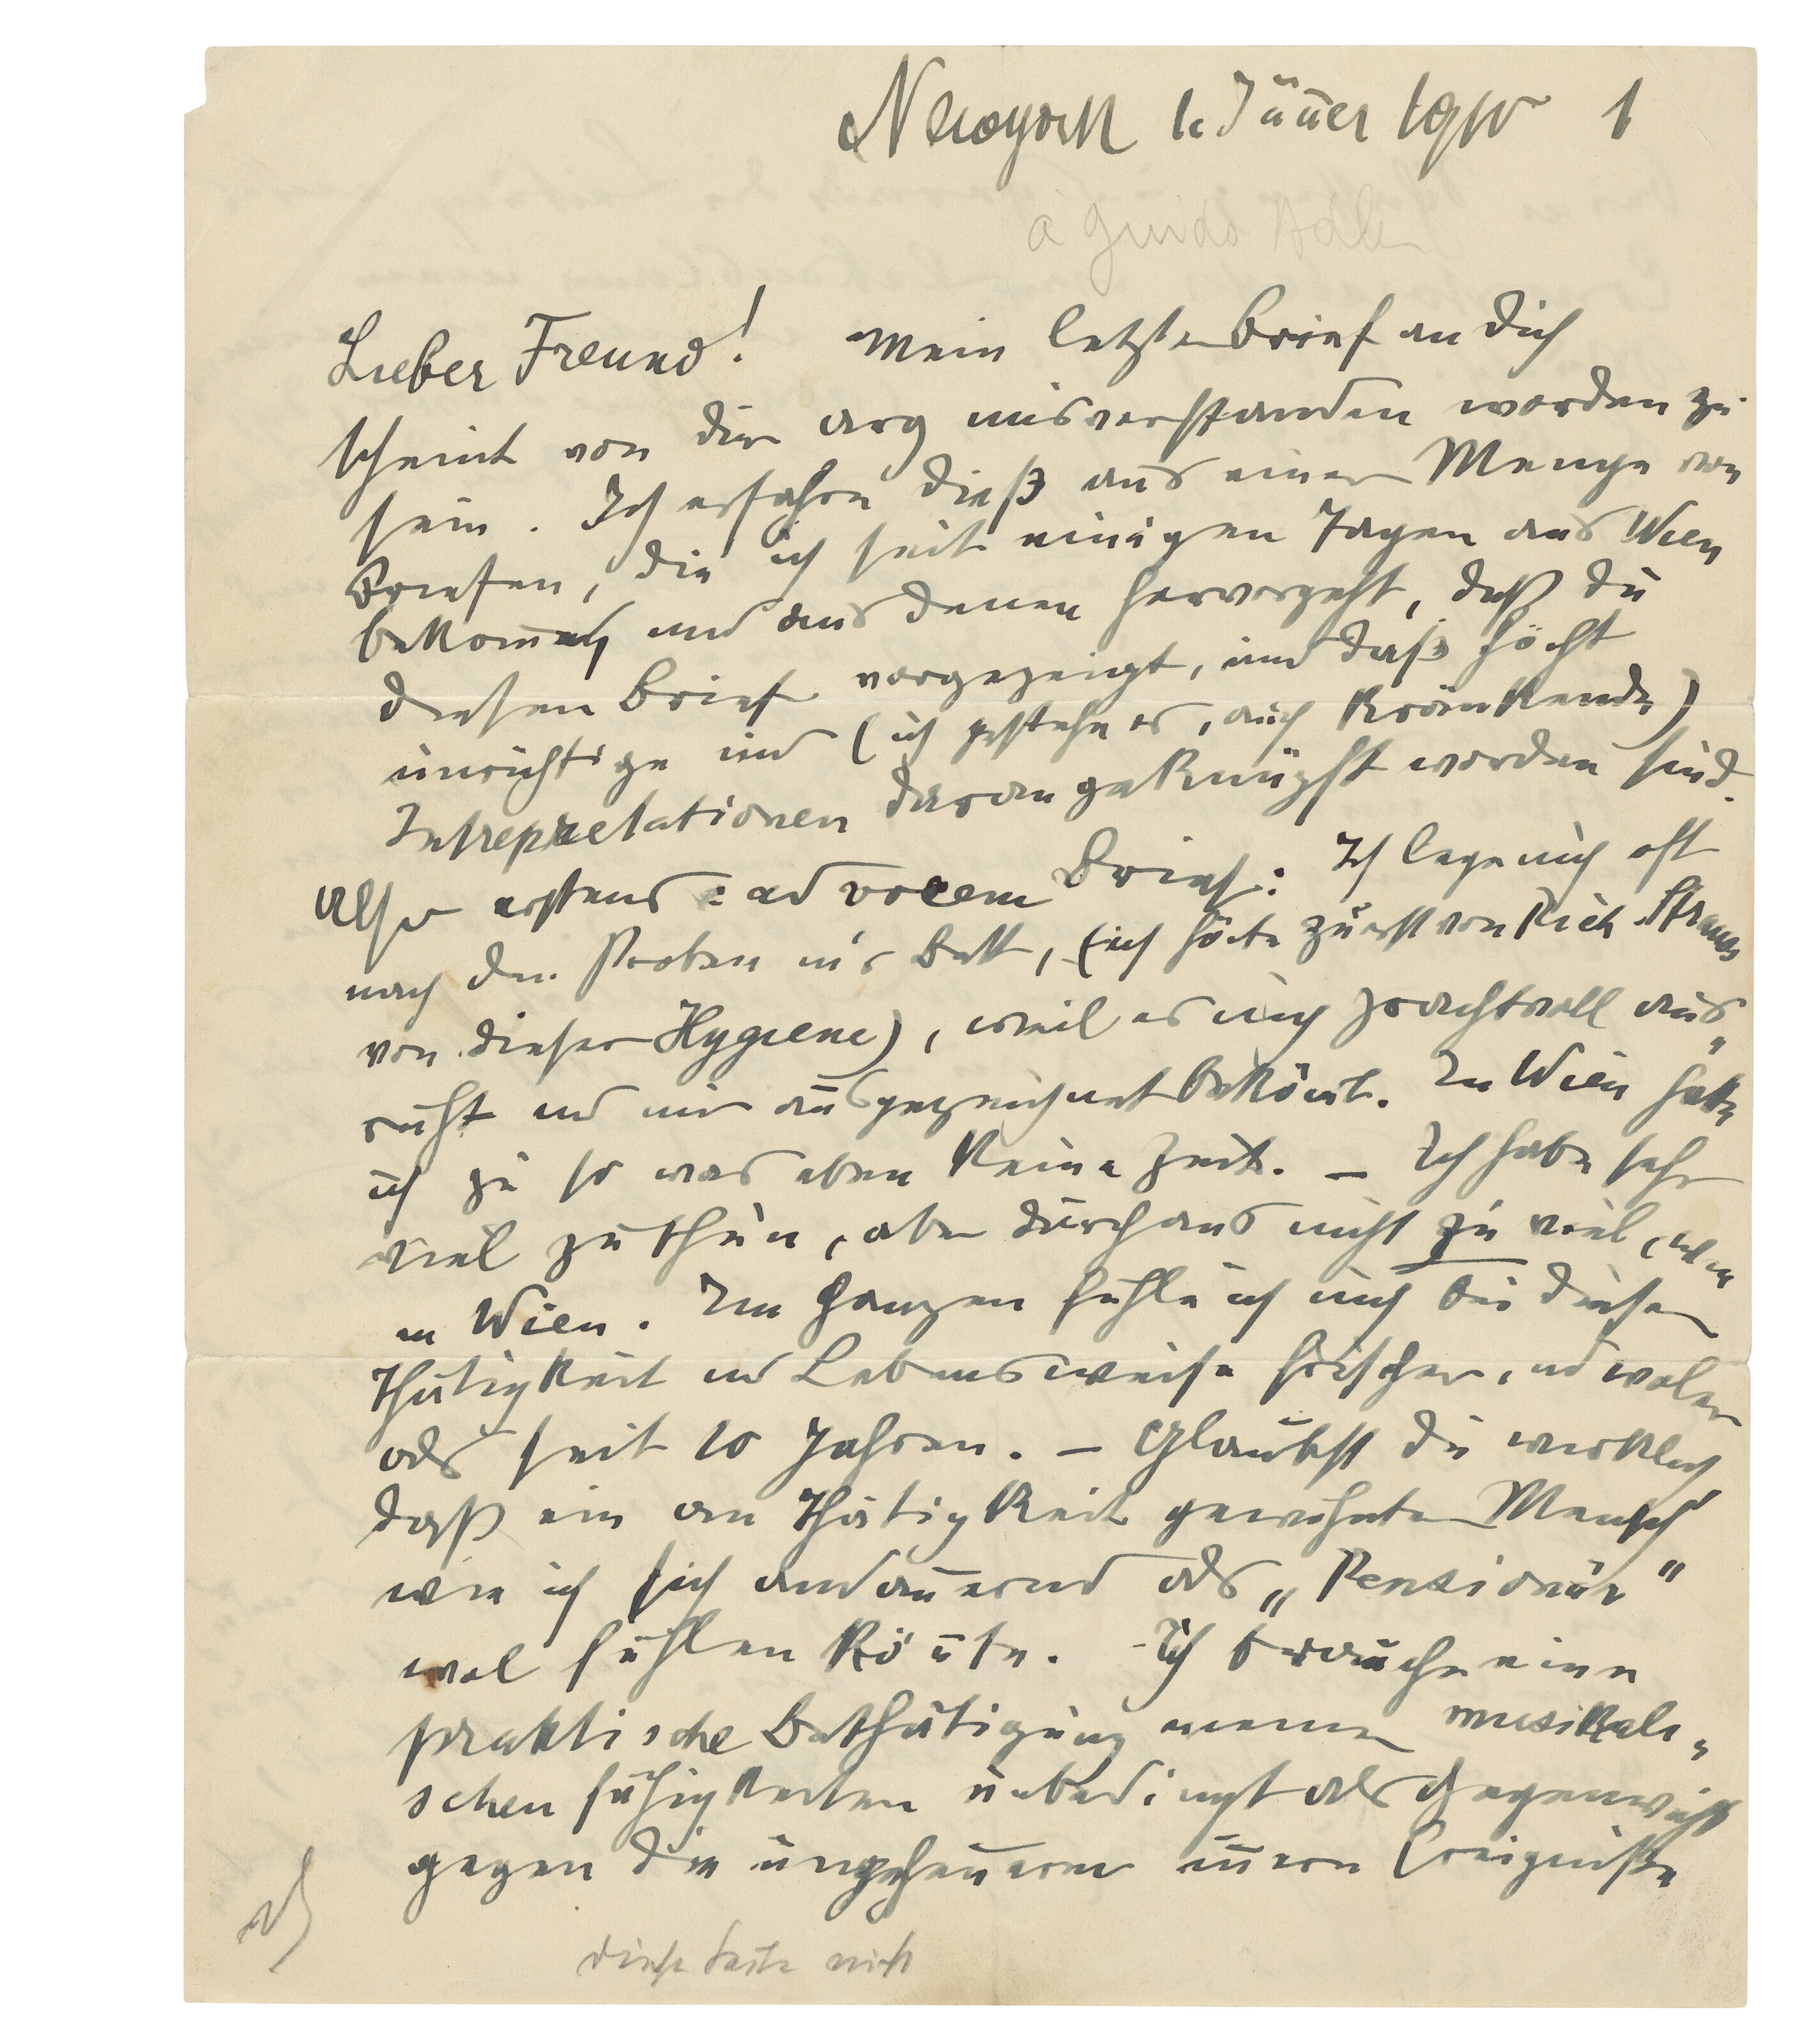 Newyork 1. Jänner 1910 1
a Guido Adler
Lieber Freund! Mein letzter Brief an dich
scheint von dir arg misverstanden worden zu
sein. Ich erfahre dieß aus einer Menge von
Briefen, die ich seit einigen Tagen aus Wien
bekomme und aus denen hervorgeht, daß du
diesen Brief vorgezeigt, und daß höchst
unrichtige und (ich gestehe es, auch kränkende)
Intrepretationen daran geknüpft worden sind.
Also erstens: ad vocem Brief: Ich lege mich oft
nach den Proben in's Bett, (ich hörte zuerst von Rich. Strauss
von dieser Hygiene), weil es mich prachtvoll aus„
ruht und mir ausgezeichnet bekömt. In Wien hatte
ich zu so was eben keine Zeit. – Ich habe sehr
viel zu thun, aber durchaus nicht zu viel, wie
in Wien. Im Ganzen fühle ich mich bei dieser
Thätigkeit und Lebensweise frischer, und woler
als seit 10 Jahren. – Glaubst du wirklich
daß ein an Thätigkeit gewöhnter Mensch
wie ich sich andauernd als „Pensionär"
wol fühlen könte. Ich brauche eine
praktische Bethätigung meiner musikali„
schen Fähigkeiten unbedingt als Gegenwicht
gegen die ungeheueren innern Ereigniße
diese Seite nicht